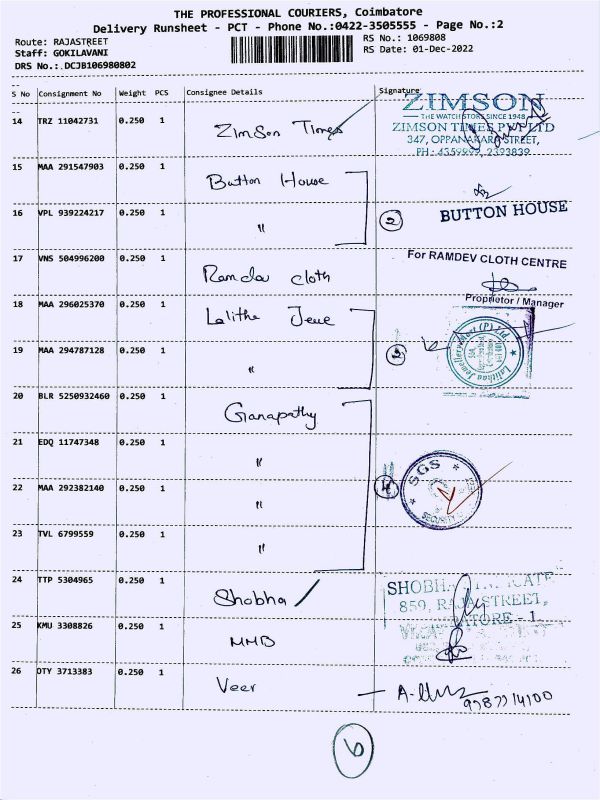 THE PROFESSIONAL COURIERS, Coimbatore
Delivery Runsheet - PCT - Phone No.:0422-3505555 - Page No.:2
Route: RAJASTREET
Staff: GOKILAVANI
DRS No.:.DCJB106980802
RS No.: 1069808
RS Date: 01-Dec-2022
S No Consignment No Weight PCS Consignee Details Signature
14 TRZ 11042731 0.250 1 Zimson Times
ZIMSON
THE WATCH STORE SINCE 1948
ZIMSON TIMES PVT LTD
347, OPPANAKARA STREET,
PH : 4359999, 2393839
15 MAA 291547903 0.250 1 Button House
16 VPL 939224217 0.250 1 "
2 BUTTON HOUSE
17 VNS 504996200 0.250 1 Ramdav cloth
For RAMDEV CLOTH CENTRE
Proprietor / Manager
18 MAA 296025370 0.250 1 Lalitha Jewe
19 MAA 294787128 0.250 1 "
2
20 BLR 5250932460 0.250 1 Ganapathy
21 EDQ 11747348 0.250 1 "
22 MAA 292382140 0.250 1 "
4 SGS SECURITY
23 TVL 6799559 0.250 1 "
24 TTP 5304965 0.250 1 Shobha
SHOBHA
859, RAJA STREET,
- 1
25 KMU 3308826 0.250 1 MMD
26 OTY 3713383 0.250 1 Veer
6